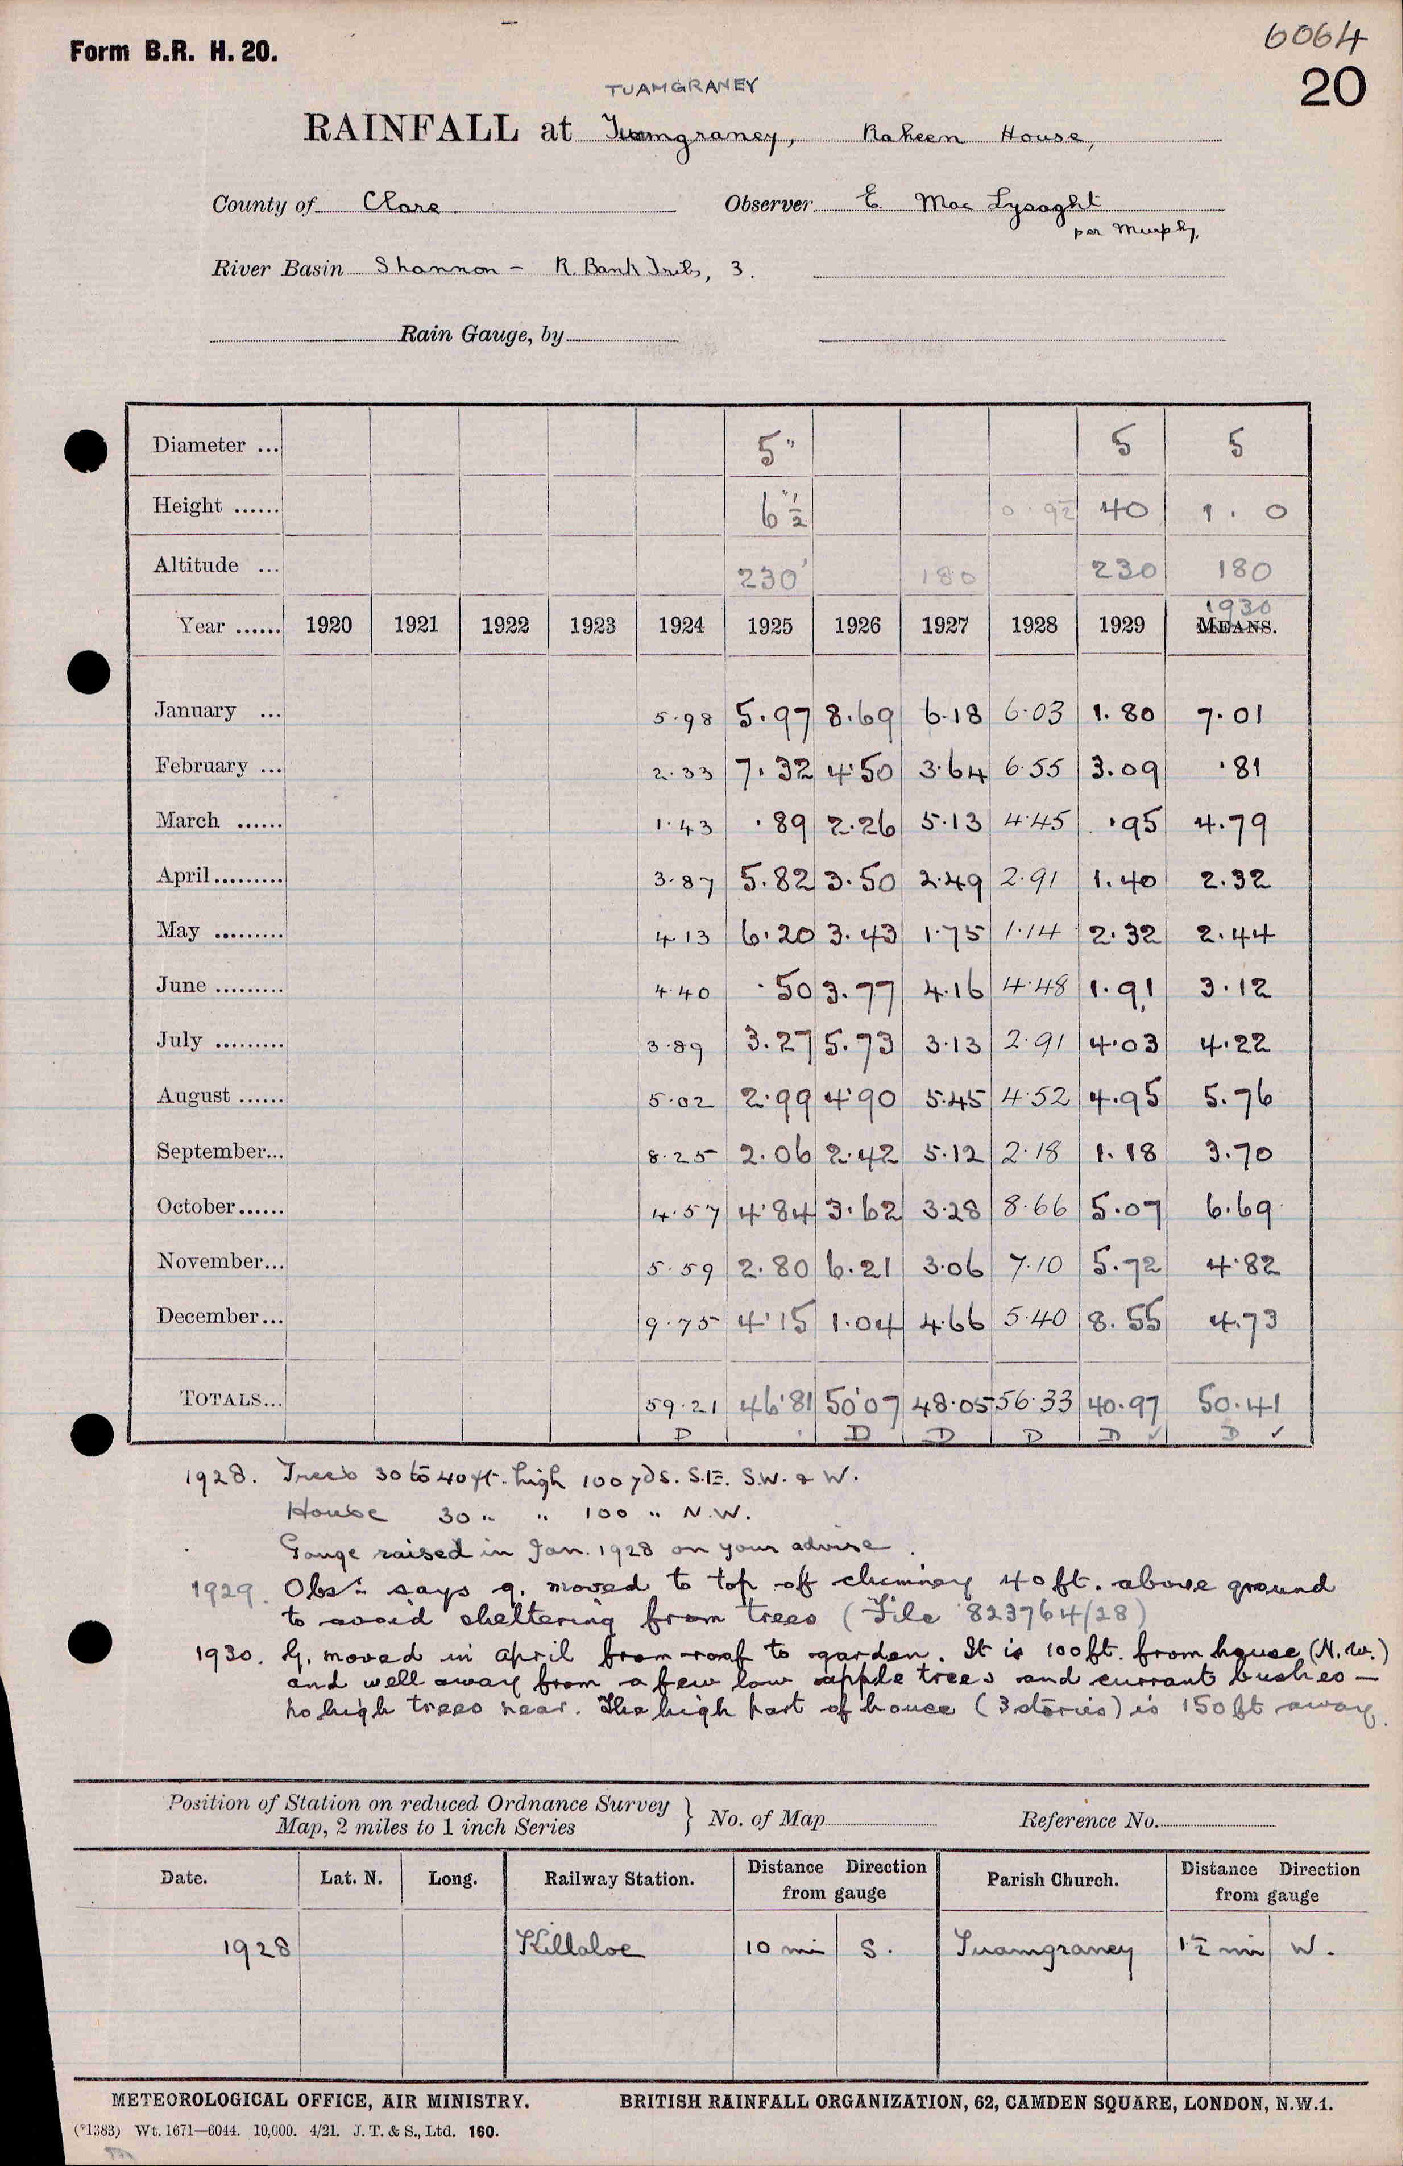 Form B.R. H. 20.
6064
20
TUAMGRANEY
RAINFALL at Tuamgraney, Raheen House,
County of Clare Observer E Mac Lysaght
per Murphy.
River Basin Shannon - R. Bank Tribs, 3.
Rain Gauge, by
Diameter ... 5" 5 5
Height ...... 6½" 0.92 40 1. 0
Altitude ... 230' 180 230 180
1930
Year ...... 1920 1921 1922 1923 1924 1925 1926 1927 1928 1929 MEANS.
January ... 5.98 5.97 8.69 6.18 6.03 1.80 7.01
February ... 2.33 7.32 4.50 3.64 6.55 3.09 .81
March ...... 1.43 .89 2.26 5.13 4.45 .95 4.79
April ......... 3.87 5.82 3.50 2.49 2.91 1.40 2.32
May ......... 4.13 6.20 3.43 1.75 1.14 2.32 2.44
June ......... 4.40 .50 3.77 4.16 4.48 1.91 3.12
July ......... 3.89 3.27 5.73 3.13 2.91 4.03 4.22
August ...... 5.02 2.99 4.90 5.45 4.52 4.95 5.76
September... 8.25 2.06 2.42 5.12 2.18 1.18 3.70
October...... 4.57 4.84 3.62 3.28 8.66 5.07 6.69
November... 5.59 2.80 6.21 3.06 7.10 5.72 4.82
December... 9.75 4.15 1.04 4.66 5.40 8.55 4.73
TOTALS... 59.21 46.81 50.07 48.05 56.33 40.97 50.41
D D D D D ✓ D ✓
1928. Trees 30 to 40 ft. high 100 yds. S.E. S.W. & W.
House 30 " " 100 " N.W.
Gauge raised in Jan. 1928 on your advise.
1929. Obsr. says g. moved to top off chimney 40 ft. above ground
to avoid sheltering from trees (File 823764/28)
1930. G. moved in April from roof to garden. It is 100 ft. from house (N.W.)
and well away from a few low apple trees and currant bushes —
no high trees near. The high part of house (3 stories) is 150 ft away.
Position of Station on reduced Ordnance Survey
Map, 2 miles to 1 inch Series } No. of Map Reference No.
Date. Lat. N. Long. Railway Station. Distance Direction from gauge Parish Church. Distance Direction from gauge
1928 Killaloe 10 mi S. Tuamgraney 1½ mi W.
METEOROLOGICAL OFFICE, AIR MINISTRY. BRITISH RAINFALL ORGANIZATION, 62, CAMDEN SQUARE, LONDON, N.W.1.
(*1383) Wt. 1671—6044. 10,000. 4/21. J. T. & S., Ltd. 160.